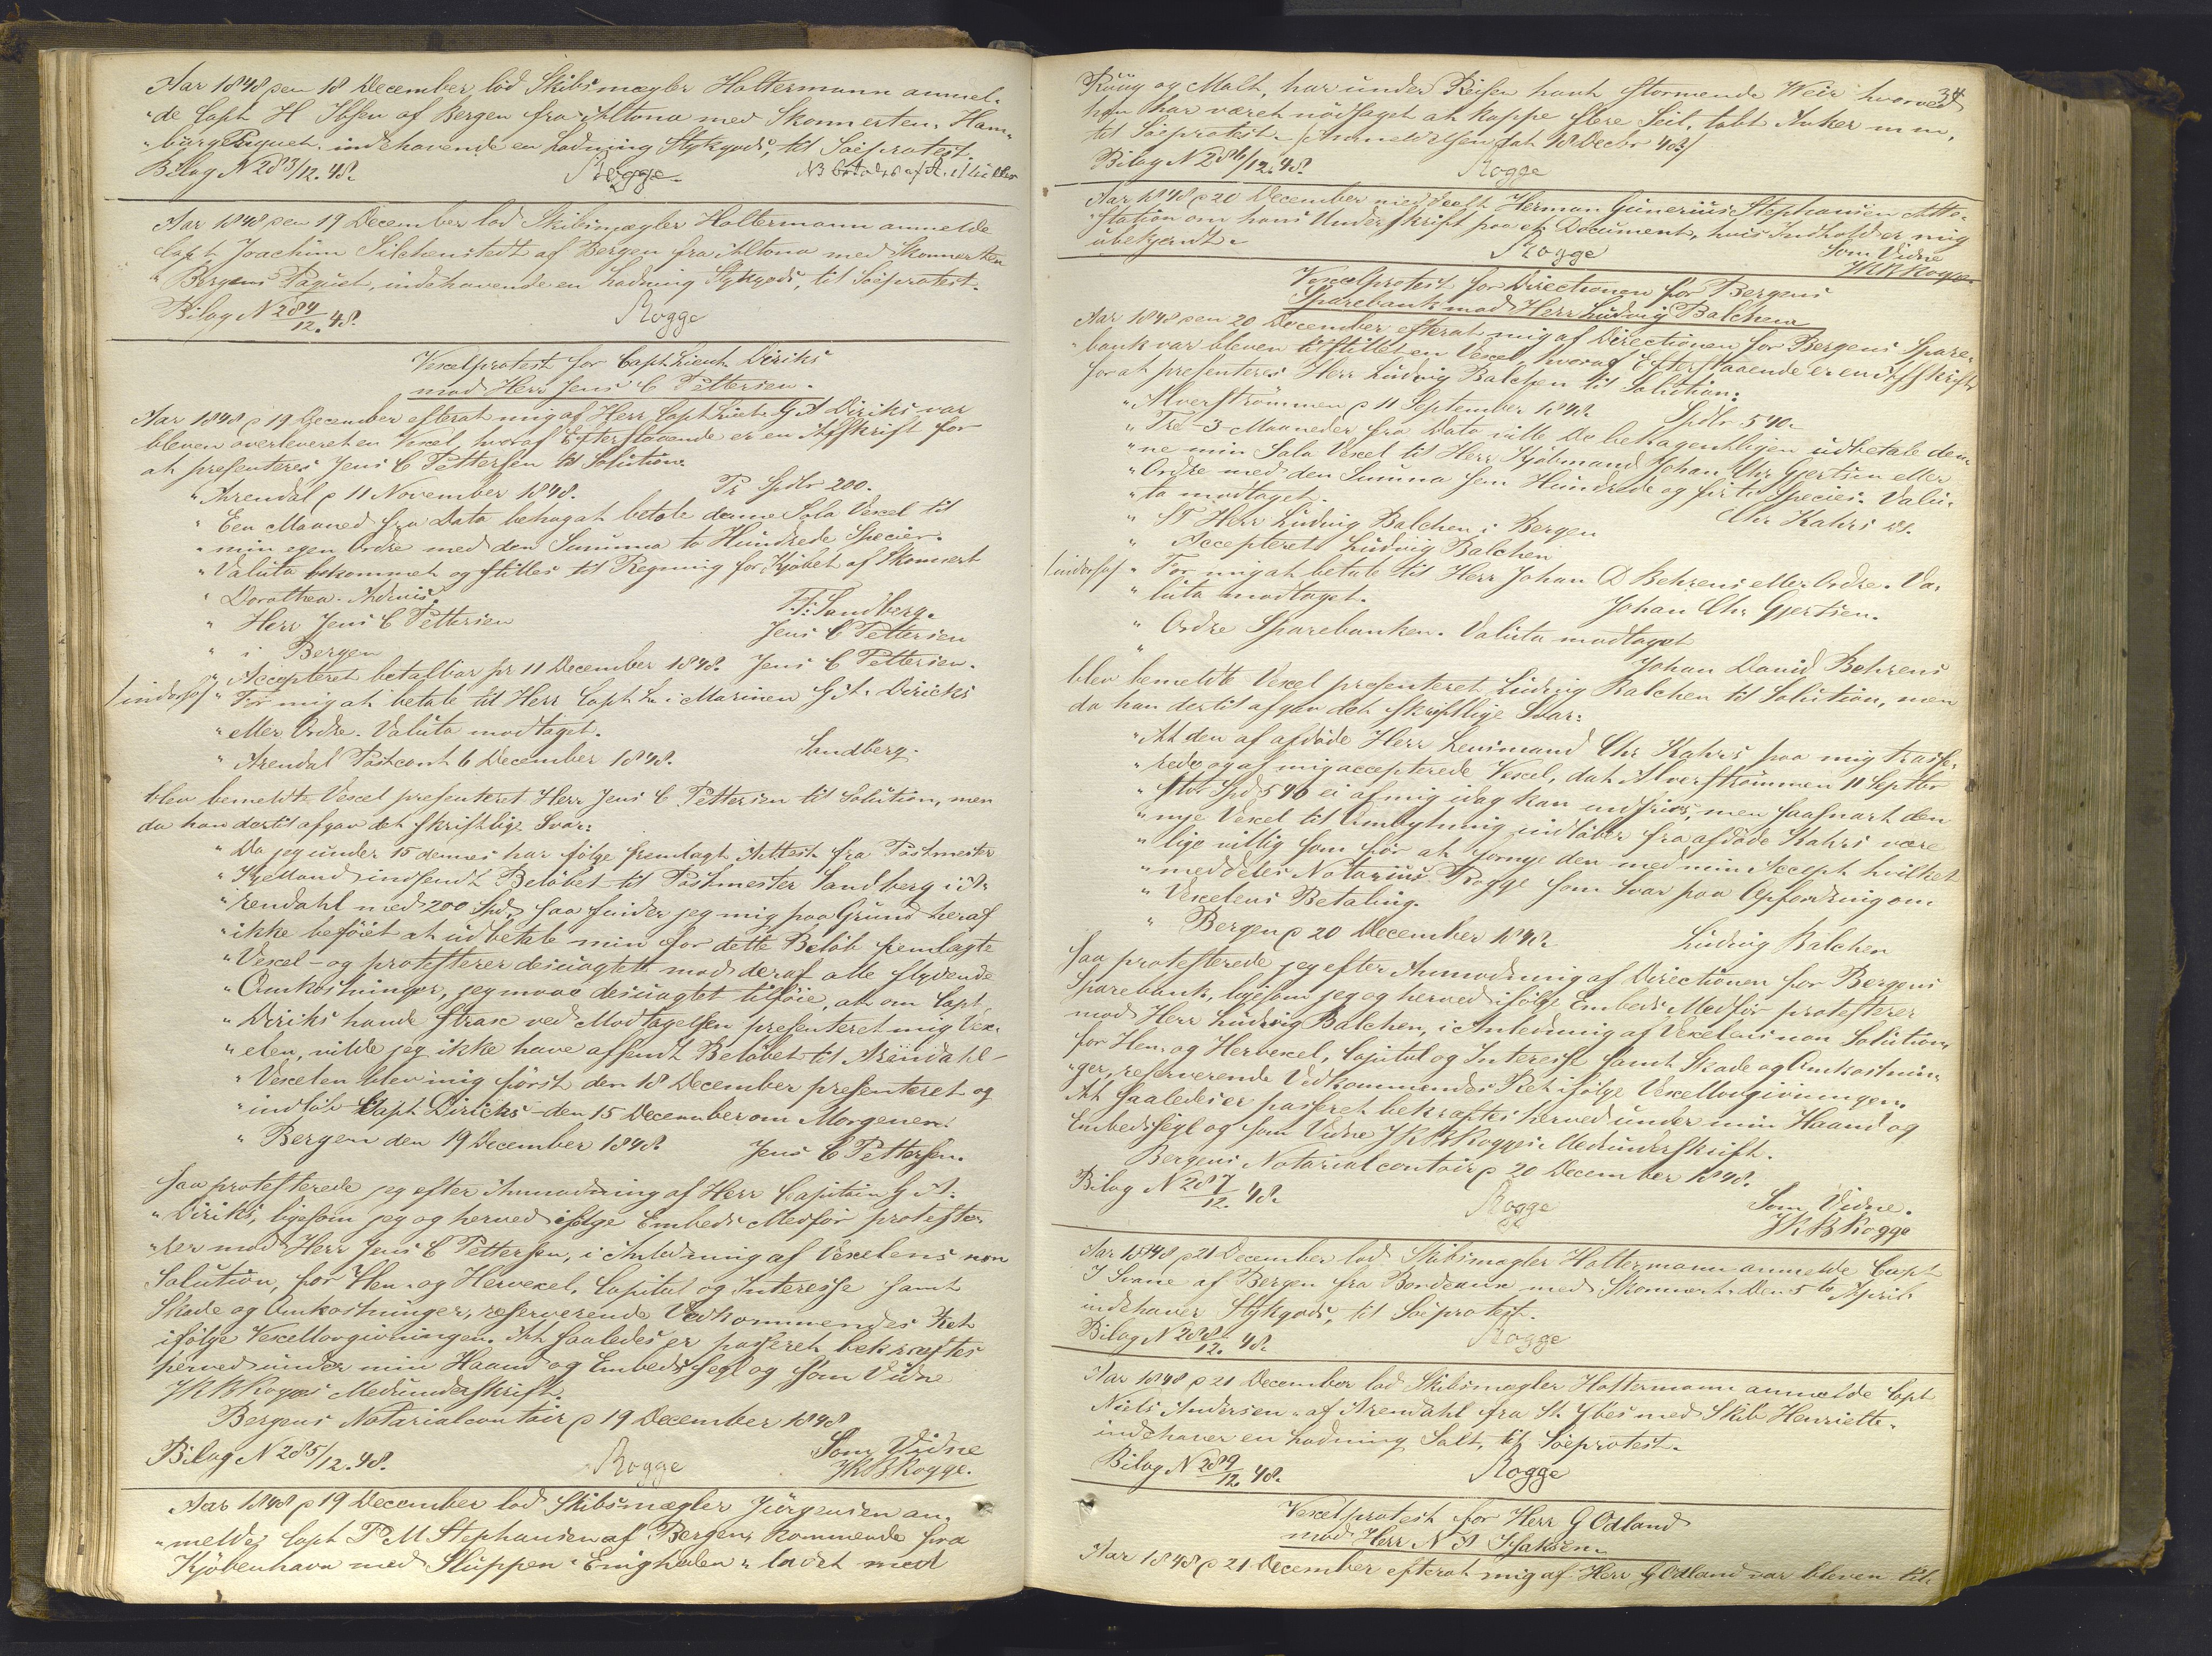 Aar 1848 den 18 December lod Skibsmægler Holtermann anmel-
"de Capt H Ibsen af Bergen fra Altona med Skonnerten "Ham-
"burg Paquet, indehavende en Ladning Stykgods, til Søeprotest.
Bilag N 283/12. 48. Rogge NB
Aar 1848 den 19 December lod Skibsmægler Holtermann anmelde
Capt Joachim Silchenstedt af Bergen fra Altona med Skonnerten
"Bergens Paquet, indehavende en Ladning Stykgods, til Søeprotest.
Bilag N 284/12. 48. Rogge
Vexelprotest for Capt. Lieut. Diriks
mod Herr Jens C Pettersen.
Aar 1848 p 19 December efterat mig af Herr Capt Lieut. G A Diriks var
bleven overleveret en Vexel, hvoraf Efterstaaende er en Afskrift for
at presenteres Jens C Pettersen til Solution:
"Arendal p 11 November 1848. Pr Spdlr 200.
"Een Maaned fra Dato behag at betale denne Sola Vexel til
"min egen Ordre med den Summa to Hundrede Species.
"Valuta bekommet og stilles til Regning for Kjøbet af Skonnert
"Dorothea.
"Herr Jens C Pettersen F. F. Sandberg.
"i Bergen Jens C Pettersen
"Accepteret betalbar pr 11 December 1848. Jens C Pettersen.
/indorsf/ "For mig at betale til Herr Capt Lr. i Marinen G A. Diricks
"eller Ordre. Valuta modtaget.
"Arendal Postcont 6 December 1848. Sandberg.
blev bemeldte Vexel presenteret Herr Jens C Pettersen til Solution, men
da han dertil afgav det skriftlige Svar:
"Da jeg under 15 dennes har følge fremlagt Attest fra Postmester
"Kielland indsendt Beløbet til Postmester Sandberg i A-
"rendahl med 200 Spd, saa finder jeg mig paa Grund heraf
"ikke beføiet at udbetale min for dette Beløb fremlagte
"Vexel – og protesterer desuagtet mod deraf alle flydende
"Omkostninger, jeg maae desuagtet tilføie, at om Capt
"Diriks havde strax ved Modtagelsen presenteret mig Vex-
"elen, vilde jeg ikke have afsendt Beløbet til Arendahl –
"Vexelen blev mig først den 18 December presenteret og
"indløb Capt Diricks – den 15 December om Morgenen.
"Bergen den 19 December 1848. Jens C Pettersen.
saa protesterede jeg efter Anmodning af Herr Capitain G A.
"Diriks, ligesom jeg og herved ifølge Embeds Medfør proteste-
"rer mod Herr Jens C Pettersen, i Anledning af Vexelens non
Solution, for Hen- og Hervexel, Capital og Interesse samt
Skade og Omkostninger, reserverende Vedkommendes Ret
ifølge Vexellovgivningen. At saaledes er passeret bekræftes
herved under min Haand og Embeds Segl og som Vidne
J K B Rogges Medunderskrift.
Bergens Notarialcontoir p 19 December 1848
Som Vidne
Bilag N 285/12. 48. Rogge JKB Rogge.
Aar 1848 p 19 December lod Skibsmægler Jürgensen an-
"melde Capt P M Stephansen af Bergen, kommende fra
Kjøbenhavn med Sluppen "Enigheden" ladet med
34
Ruug og Malt, har under Reisen havt stormende Veir hvorved
han har været nødsaget at kappe flere Seil, tabt Anker m m,
til Søeprotest. (Anmeldelsen dat 18 Decbr 48)
Bilag N 286/12. 48. Rogge
Aar 1848 p 20 December meddeelt Herman Gunerius Stephansen Atte-
"station om hans Underskrift paa et Document, hvis Indhold er mig
ubekjendt. Rogge Som Vidne
JKB Rogge
Vexelprotest for Directionen for Bergens
Sparebank mod Herr Ludvig Balchen
Aar 1848 den 20 December efterat mig af Directionen for Bergens Spare-
"bank var bleven tilstillet en Vexel, hvoraf Efterstaaende er en Afskrift
for at presenteres Herr Ludvig Balchen til Solution:
"Alverstrømmen p 11 September 1848. Spdlr 540.
"Tre – 3 – Maaneder fra Dato ville De behagentligen udbetale den-
"ne min Sola Vexel til Herr Kjøbmand Johan Chr Gjertsen eller
"Ordre med den Summa fem Hundrede og firti Species. Valu-
"ta modtaget.
"ST Herr Ludvig Balchen i Bergen Chr Kahrs
"Accepteret Ludvig Balchen
/indorsf/ "For mig at betale til Herr Johan D Behrens eller Ordre. Va-
"luta modtaget. Johan Chr Gjertsen.
"Ordre Sparebanken. Valuta modtaget
" Johan David Behrens
blev bemeldte Vexel presenteret Ludvig Balchen til Solution, men
da han dertil afgav det skriftlige Svar:
"At den af afdøde Herr Lensmand Chr Kahrs paa mig trasse-
"rede og af mig accepterede Vexel, dat Alverstrømmen 11 Septbr
"stor Spd 540 ei af mig idag kan indfries, men saasnart den
"nye Vexel til Ombytning indløber fra afdøde Kahrs være
"lige villig som før at fornye den med min Accept hvilket
"meddeles Notarius Rogge som Svar paa Opfordring om
"Vexelens Betaling.
"Bergen p 20 December 1848. Ludvig Balchen
saa protesterede jeg efter Anmodning af Directionen for Bergens
Sparebank, ligesom jeg og herved ifølge Embeds Medfør protesterer
mod Herr Ludvig Balchen, i Anledning af Vexelens non Solution,
for Hen- og Hervexel, Capital og Interesse samt Skade og Omkostnin-
"ger, reserverende Vedkommendes Ret ifølge Vexellovgivningen.
At saaledes er passeret bekræftes herved under min Haand og
Embedssegl og som Vidne J K B Rogges Medunderskrift.
Bergens Notarialcontoir p 20 December 1848.
Bilag N 287/12. 48. Rogge Som Vidne.
JKB Rogge
Aar 1848 p 21 December lod Skibsmægler Holtermann anmelde Capt
J Svane af Bergen fra Bordeaux med Skonnert. Den 5te April
indehaver Stykgods, til Søeprotest.
Bilag N 288/12. 48. Rogge
Aar 1848 p 21 December lod Skibsmægler Holtermann anmelde Capt
Niels Andersen af Arendahl fra St. Ybes med Skib Henriette,
indehaver en Ladning Salt, til Søeprotest.
Bilag N 289/12. 48. Rogge
Vexelprotest for Herr G Odland
mod Herr N A Isaksen
Aar 1848 p 21 December efterat mig af Herr G Odland var bleven til-